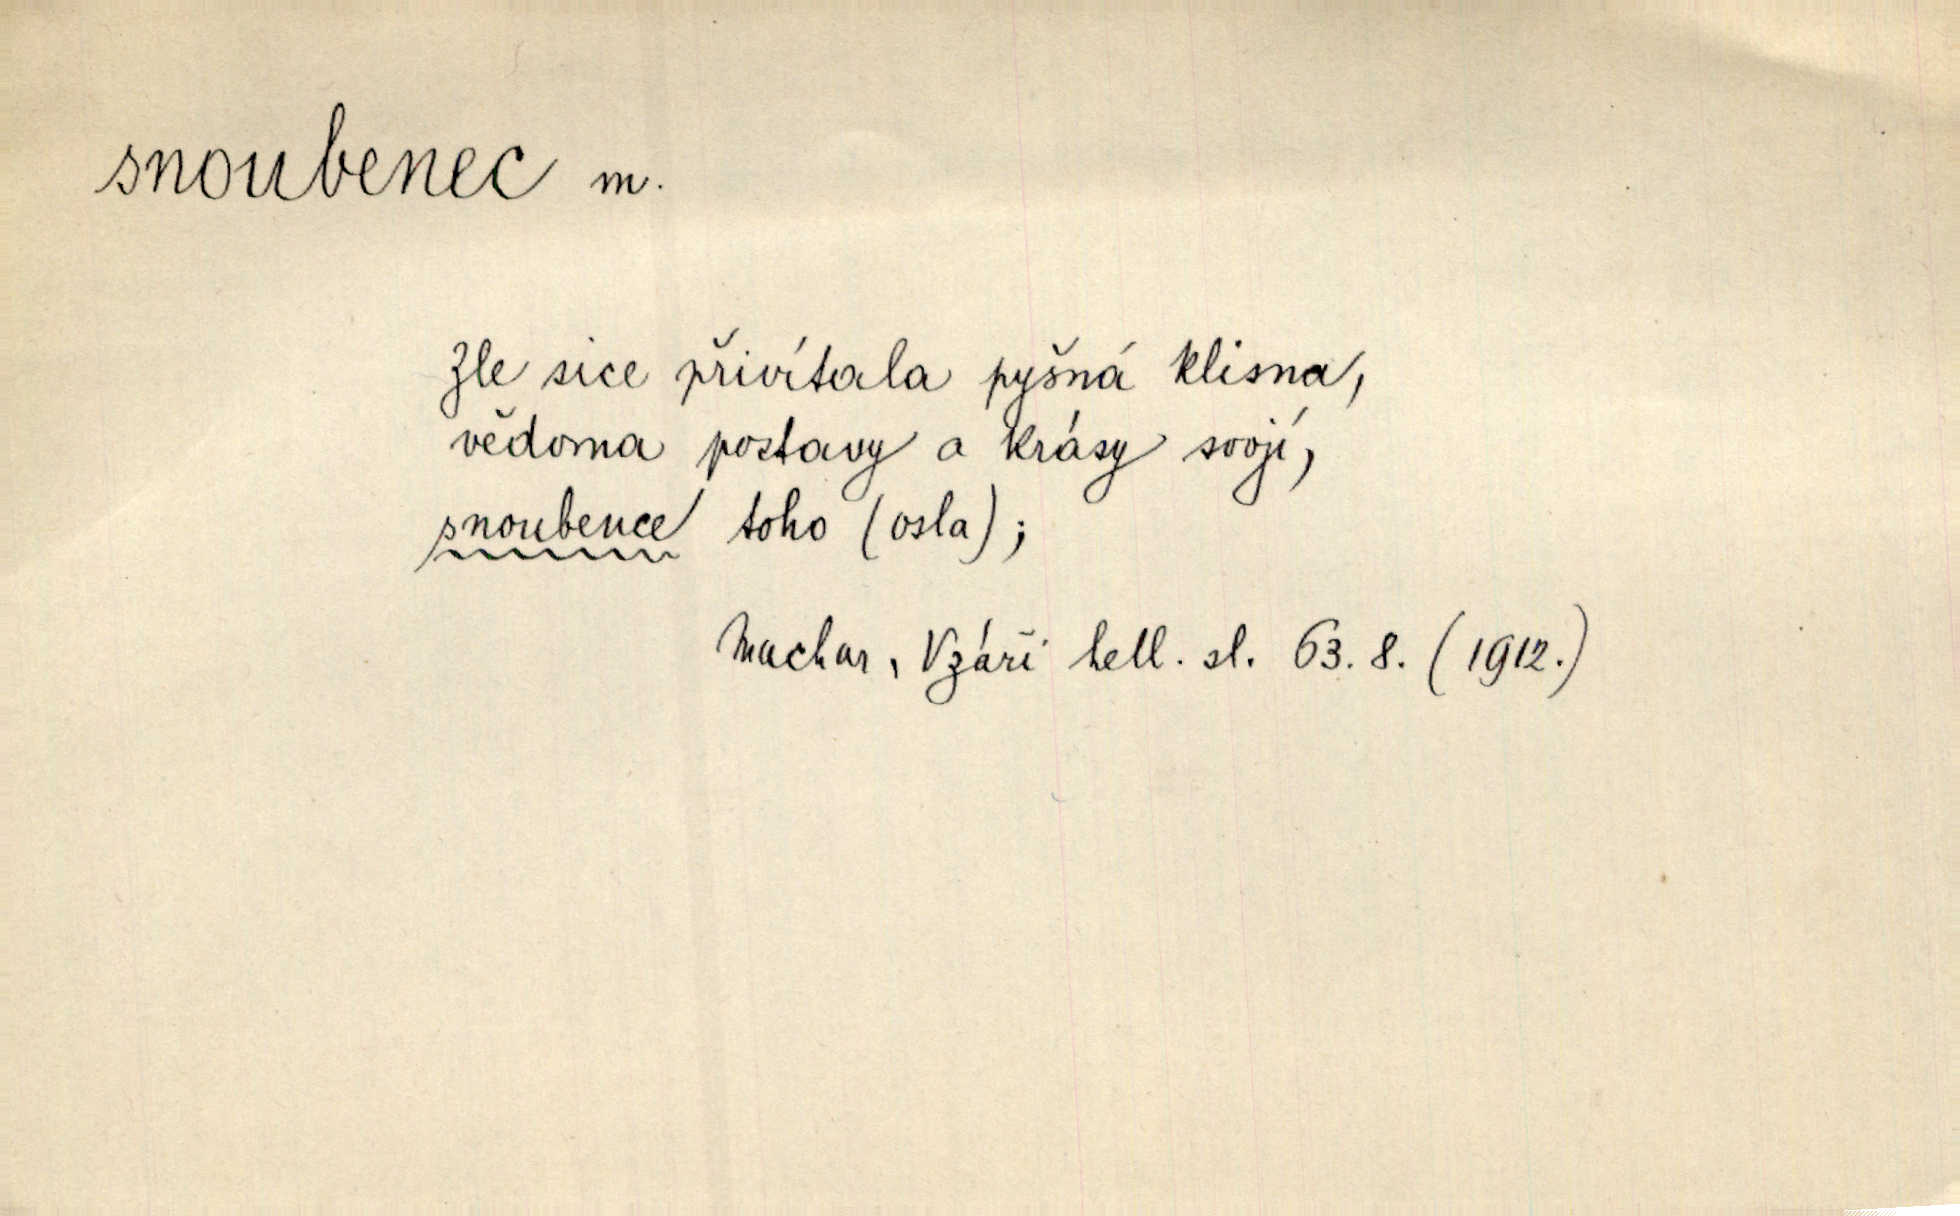 snoubenec m.
Zle sice přivítala pyšná klisna,
vědoma postavy a krásy svojí,
snoubence toho (osla);
Machar, V záři hell. sl. 63. 8. (1912.)